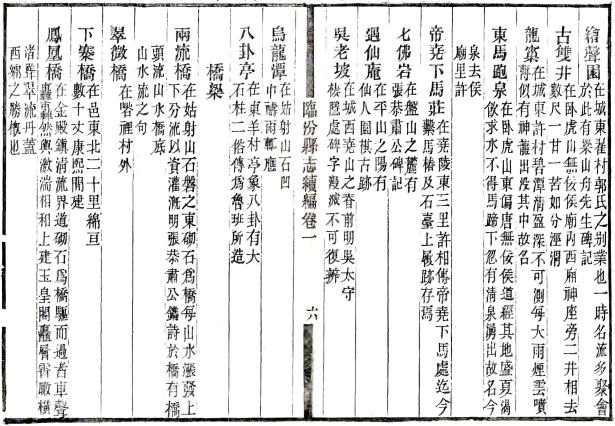 繪聲園
在城東翟村郭氏之别業也一時名流多聚會
於此有梁山舟先生碑記
古雙井
在卧虎山無佞侯廟內西廂神座旁二井相去
數尺一甘一苦如分涇渭
龍窠
在城東許村碧潭清盈深不可測每大雨煙雲噴
海例有神龍出沒其中故名
東馬跑泉
在卧虎山東偏唐無佞侯道經其地盛夏渴
欲求水不得馬蹄下忽有清泉湧出故名今
泉去侯
廟里許
帝堯下馬莊
在堯陵東三里許相傳帝堯下馬處迄今
繫馬椿及石臺上履跡存焉
七佛岩
在盤山之麓有
張恭肅公碑記
遇仙庵
在平山之陽有
仙人圍棋古跡
吳老坡
在城西堯山之脊前明吳太守
棲隱處碑字漫滅不可復辨
臨汾縣志續編卷一
六
烏龍潭
在姑射山石凹
中禱雨輒應
八卦亭
在東羊村亭象八卦有大
石柱二俗傳爲魯班所造
橋梁
兩流橋
在姑射山石磬之東砌石爲橋每山水漲發上
下分流以資灌漑明張恭肅公鐫詩於橋有橋
頭流山水橋底
山水流之句
翠微橋
在喈裡村外
下寨橋
在邑東北二十里綿亘
數十丈康熙間建
鳳凰橋
在金殿鎮清流界道砌石爲橋驅而過者車聲
轟轟然與激湍相和上建玉皇閣矗層霄瞰橫
渚群翠流丹蓋
西鄉之勝槩也